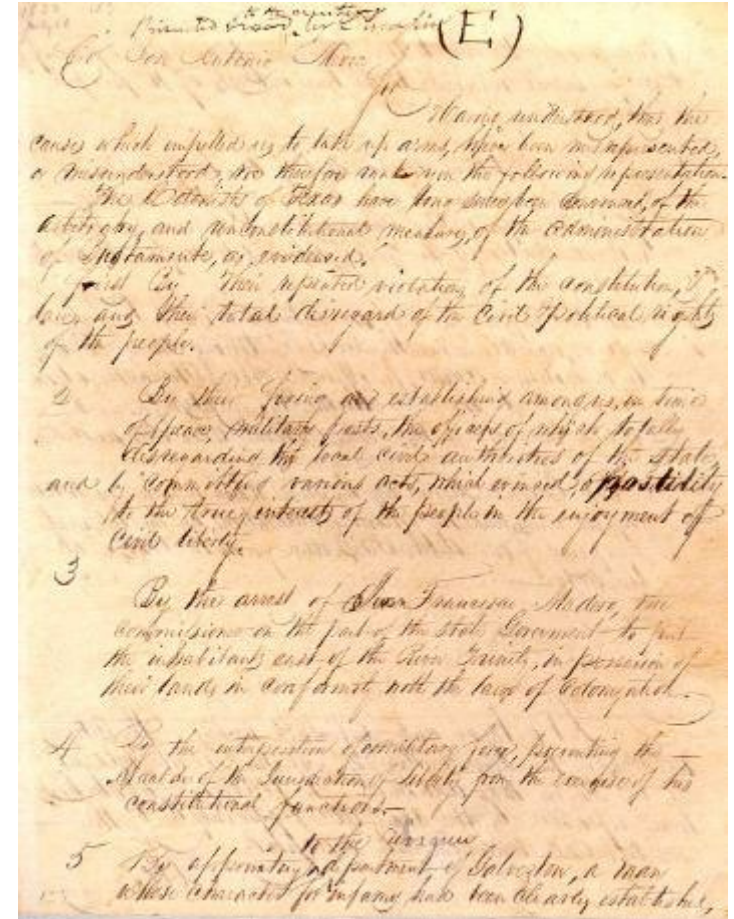 to the country
(E)
Col San Antonio Mexia
Sir
Having understood, that the
causes which impelled us to take up arms, have been misrepresented,
or misunderstood, we therefore make you the following representation.
The Colonists of Texas have long since been convinced, of the
arbitrary, and unconstitutional measures, of the administration
of Bustamente, as evidenced.
first By their repeated violations of the constitution, &
laws and their total disregard of the Civil & Political rights
of the people.
2 By their fixing and establishing among us, in times
of peace, military posts, the officers of which totally
disregarding the local civil authorities of the state
and by committing various acts, which evinced, a hostility
to the true interests of the people in the enjoyment of
civil liberty.
3
By the arrest of Juan Francisco Madero, the
commissioner on the part of the state Goverment to put
the inhabitants east of the River Trinity, in possession of
their lands in conformity with the laws of Colonization.
4 By the interposition of a military force, preventing the
Alcalde of the Jurisdiction of Liberty from the exercise of his
constitutional functions.
to the
5 By appointing department, of Galveston, a man
whose character for infamy had been clearly established,